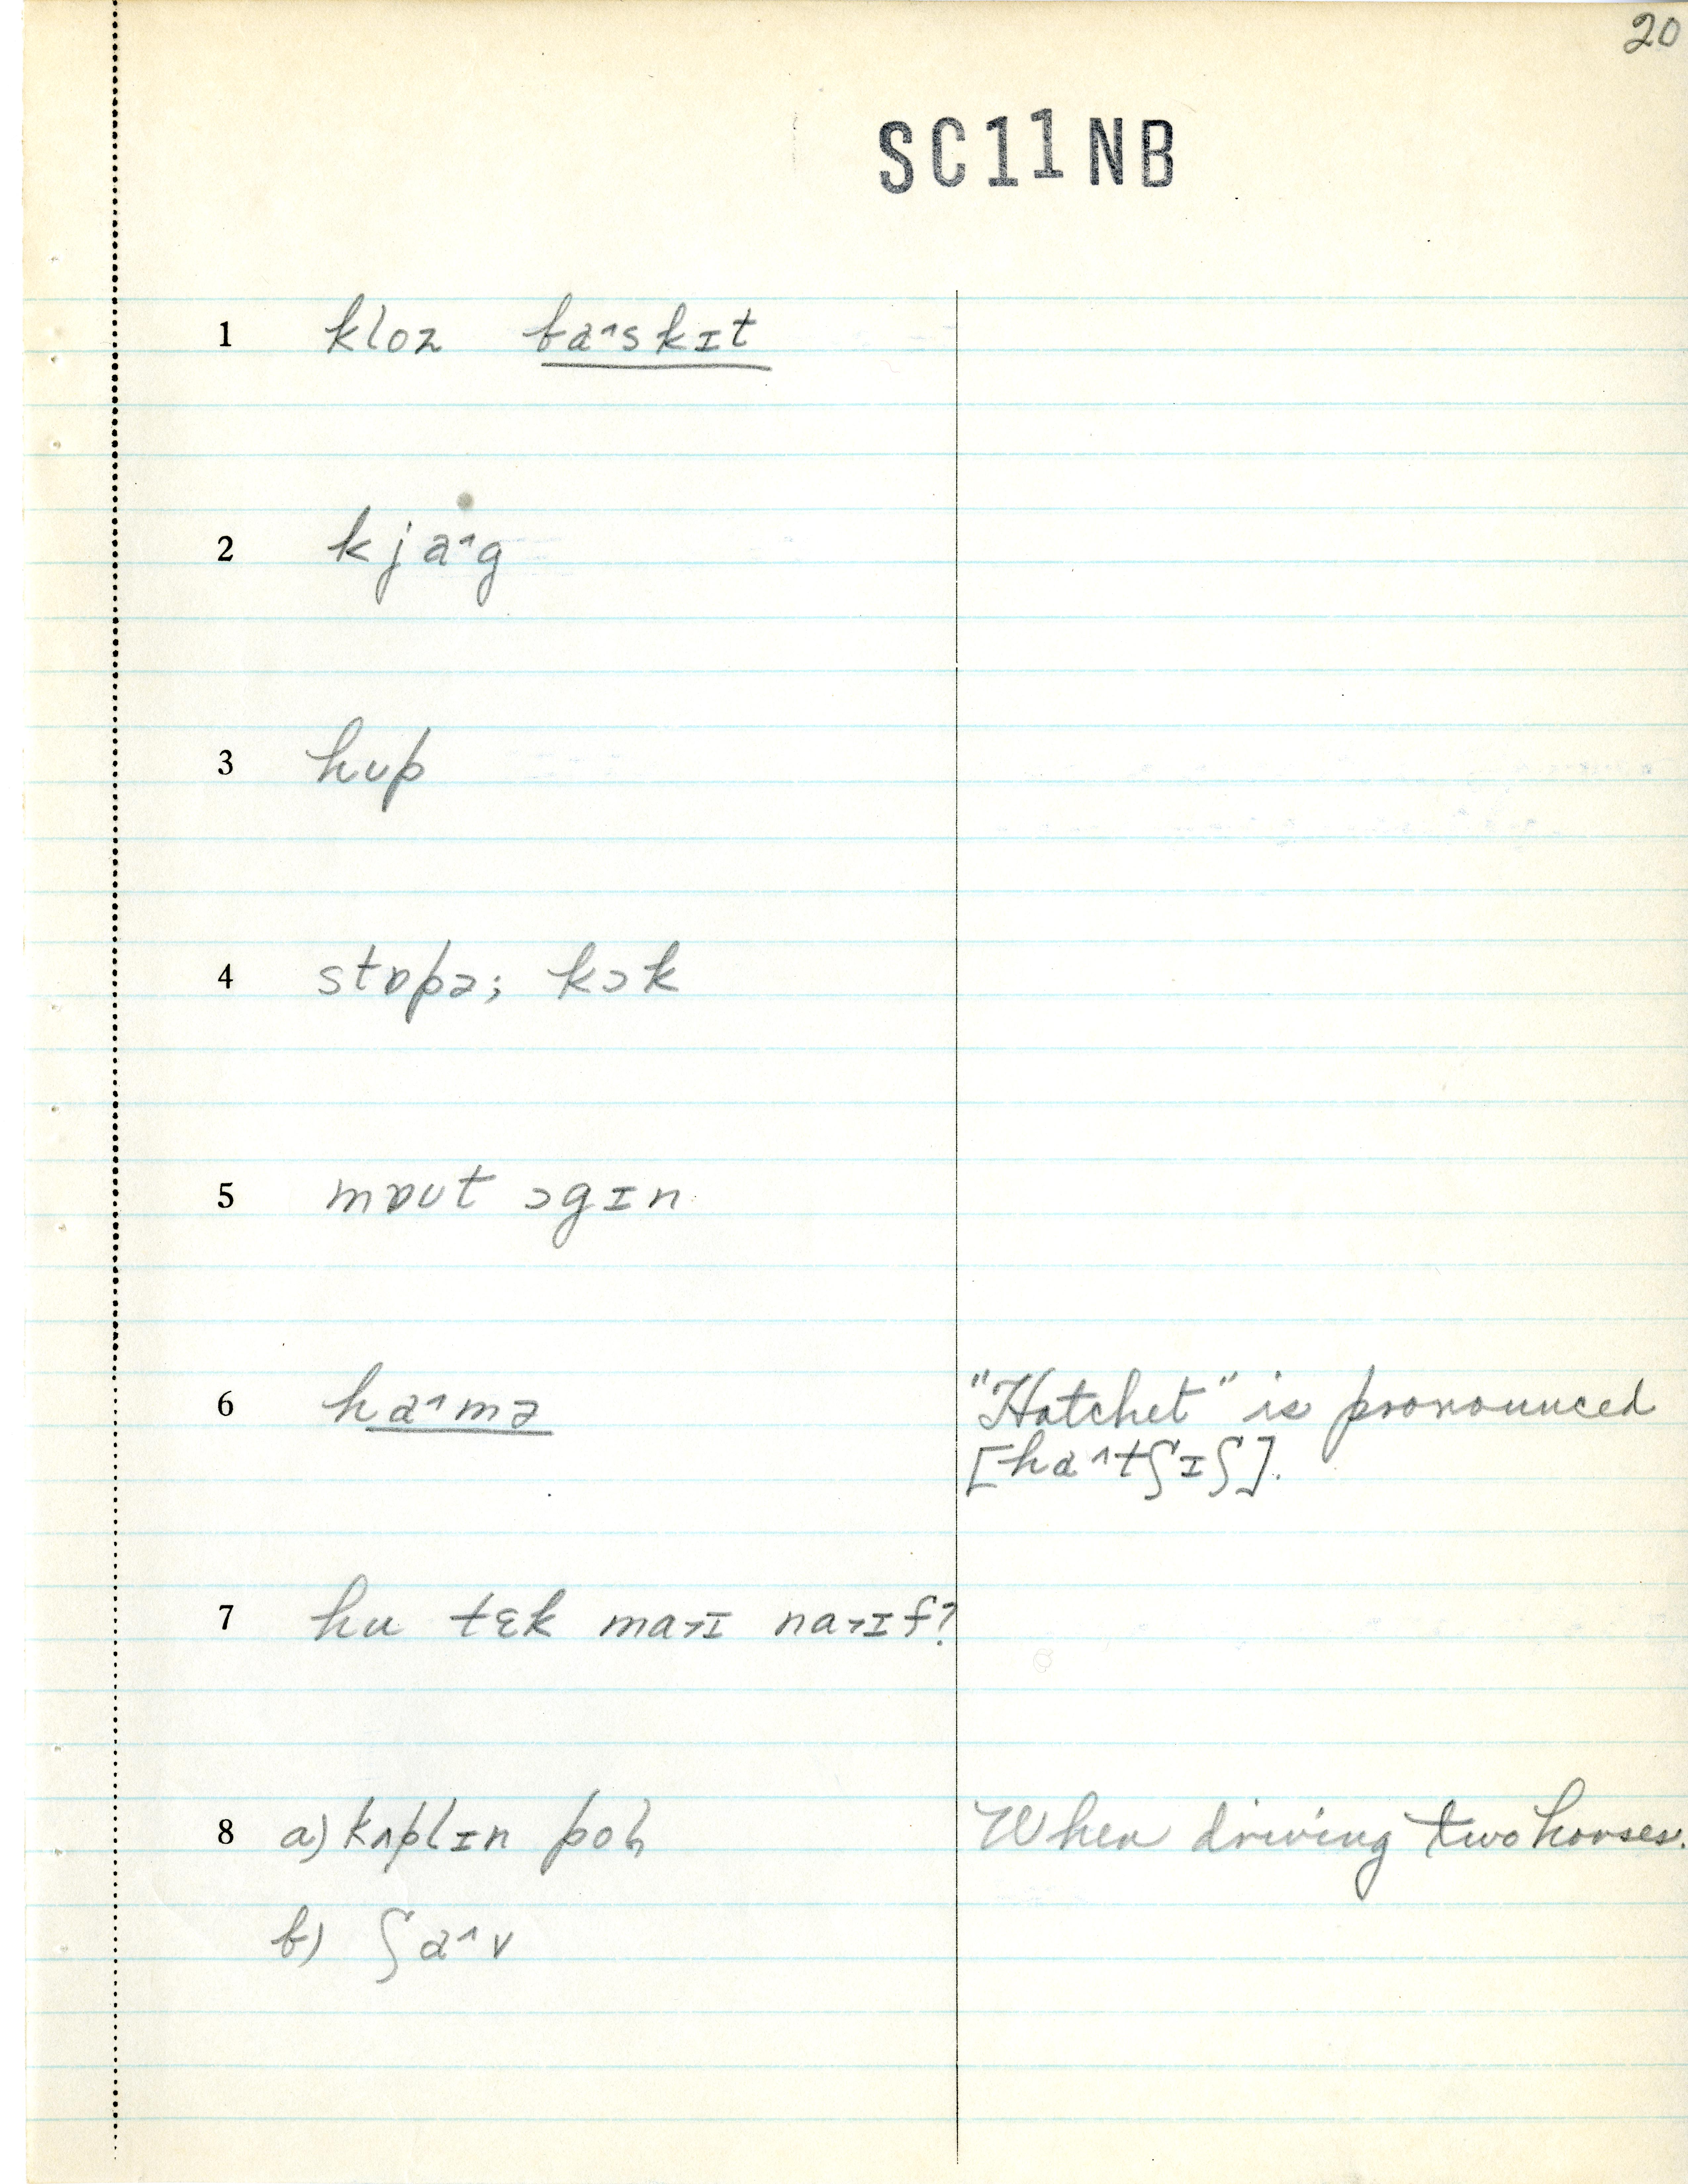 20
SC11NB
1 kloz ba^skɪt
2 kja^g
3 hʊp
4 stɒpə; kɔk
5 mɒʊt ɔgɪn
6 ha^mə "Hatchet" is pronounced
[ha^tʃɪʃ].
7 hu tɛk ma˃ɪ na˃ɪf?
8 a) kʌplɪn pol When driving two horses.
b) ʃa^v